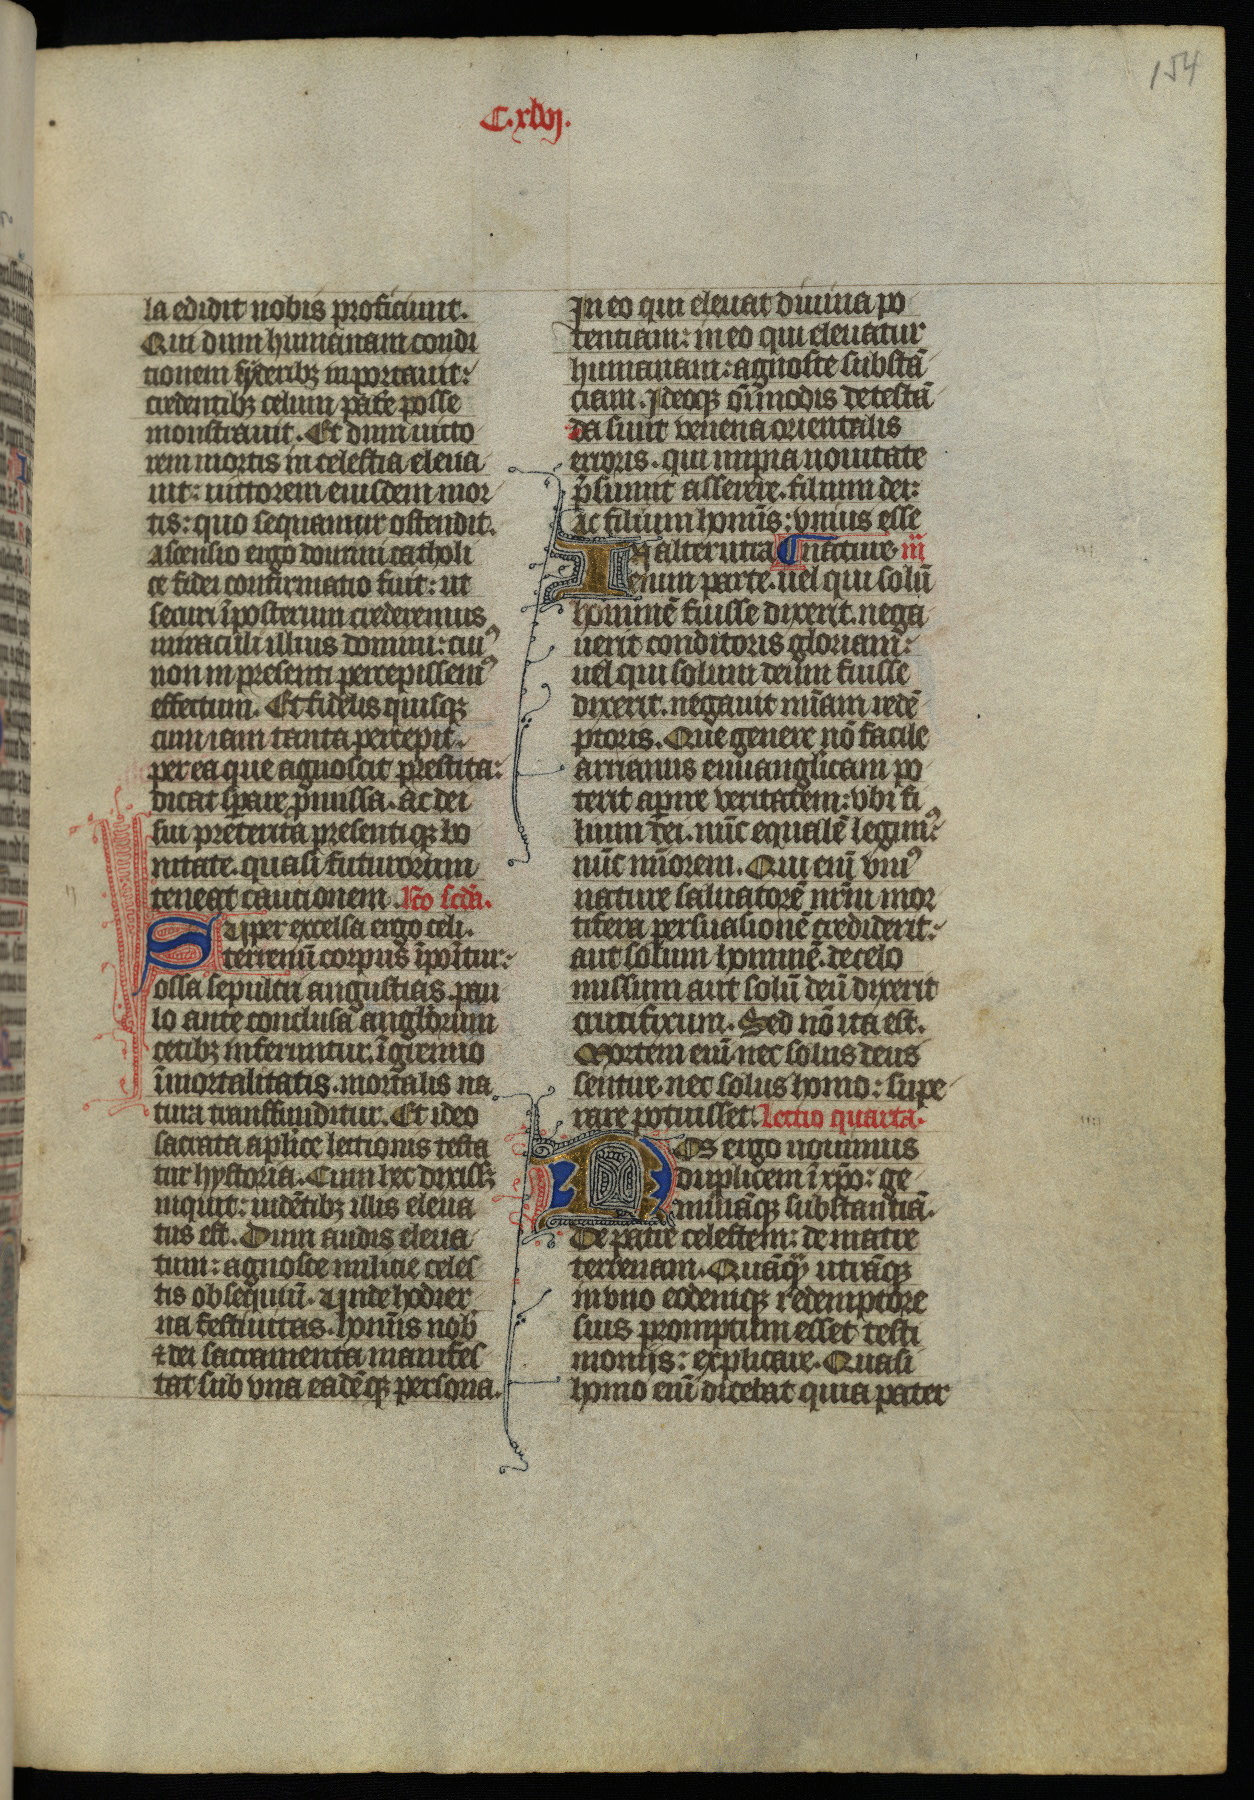 154
C.xlvj.
la edidit nobis proficiunt.
Qui dum humanam condi
tionem syderibꝫ inportauit:
credentibꝫ celum patē posse
monstrauit. Et dum uicto
rem mortis in celestia eleua
uit: uictorem eiusdem mor
tis: quo sequamur ostendit.
Ascensio ergo domini catholi
ce fidei confirmatio fuit: ut
securi īposterum crederemus
miraculi illius domini: cuiꝰ
non in presenti percepissemꝰ
effectum. Et fidelis quisqꝫ
cum iam tanta percepit.
per ea que agnoscit prestita:
dicat spare ꝓmissa. ac dei
sui preterita presentiqꝫ bo
nitate. quasi futurorum
teneat cautionem. Lco scda.
Super excelsa ergo celi.
terrenū corpus īponitur:
ossa sepulcri angustias. pau
lo ante conclusa anglorum
cetibꝫ inferuntur. ī gremio
īmortalitatis. mortalis na
tura transfunditur. Et ideo
sacrata aplice lectionis testa
tur hystoria. Cum hec dixissꝫ
inquit: uidētibꝫ illis eleua
tus est. Dum audis eleua
tum: agnosce milicie celes
tis obsequiū. Unde hodier
na festiuitas. hominis nob
⁊ dei sacramenta manifes
tat sub vna eadēqꝫ persona.
In eo qui eleuat diuina po
tentiam: in eo qui eleuatur
humanam: agnosce substā
ciam. Ideoqꝫ om̄modis detestā
da sunt venena orientalis
erroris. qui impia nouitate
p̄sumit asserere. filium dei:
ac filium hominis: vnius esse
In alterutra nature. iij
enim parte. uel qui solū
hominē fuisse dixerit. nega
uerit conditoris gloriam:
uel qui solum deum fuisse
dixerit. negauit mīam redē
ptoris. Que genere nō facile
arrianus euuanglicam po
terit apire veritatem: vbi fi
lium dei. nūc equalē legimꝰ:
nūc minorem. Qui enī vniꝰ
nature saluatorē nrm̄ mor
tifera persuasionē crediderit:
aut solum hominē. de celo
missum aut solū deū dixerit
crucifixum. Sed nō ita est.
Mortem enī nec solus deus
sentire. nec solus homo: supe
rare potuisset. Lectio quarta.
Nos ergo nouimus
duplicem ī xpo: ge
mināqꝫ substantiā.
De patre celestem: de matre
terrenam. Quāqꝫ utrāqꝫ
in vno eodemqꝫ redemptore
suis promptum esset testi
moniis: explicare. Quasi
homo enī dicebat quia pater